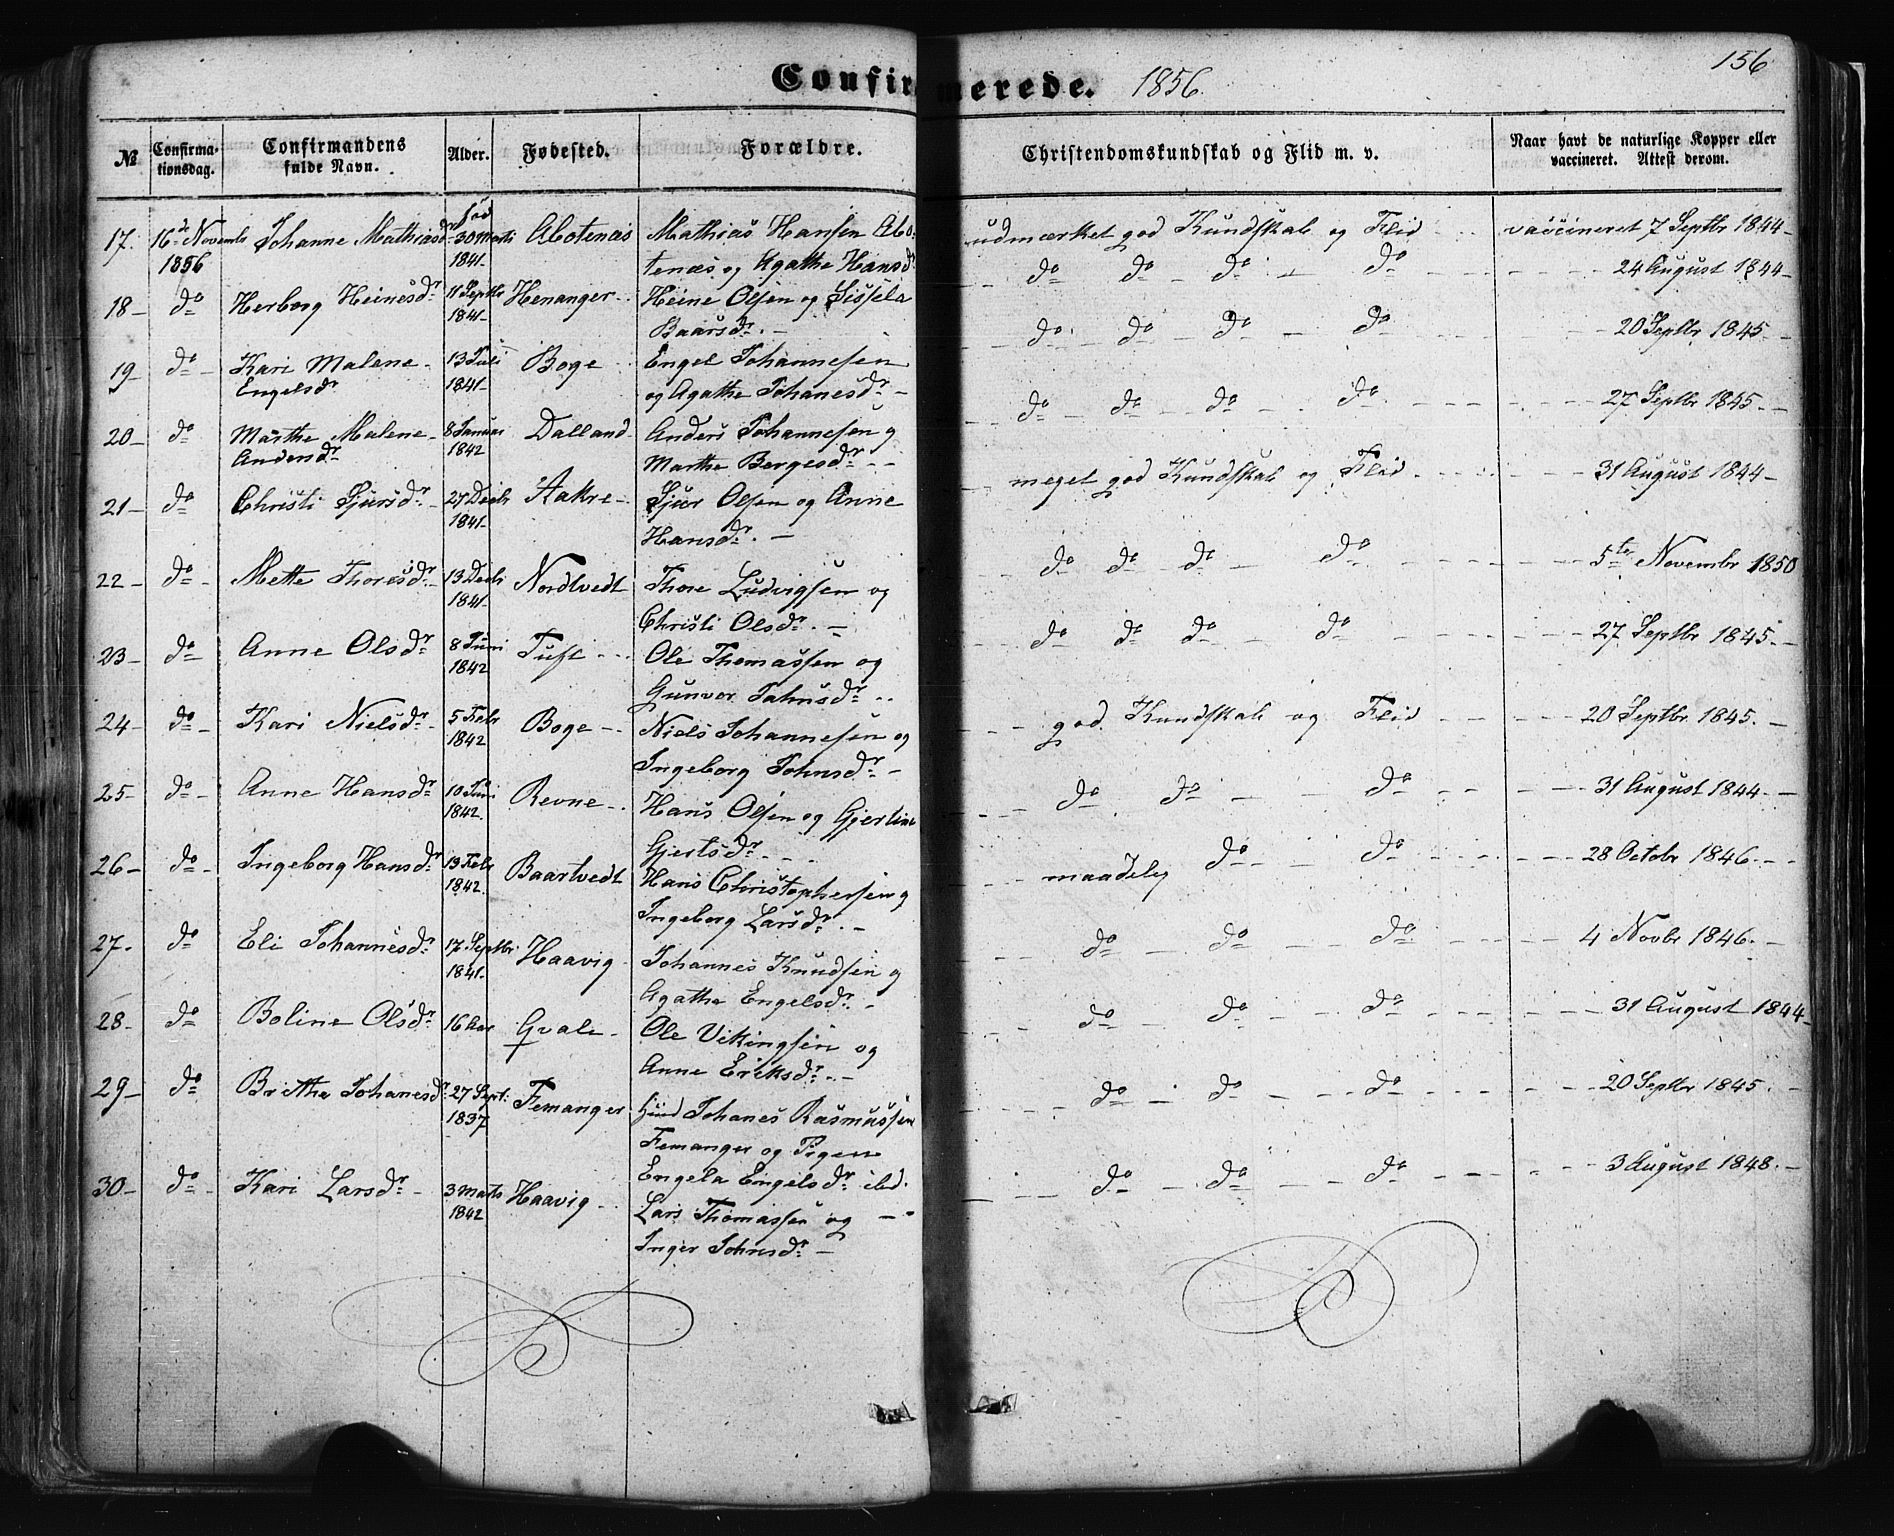 Confirmerede. 1856.
156
№ Confirma-tionsdag. Confirmandens fulde Navn. Alder. Fødested. Forældre. Christendomskundskab og Flid m. v. Naar havt de naturlige Kopper eller vaccineret. Attest derom.
17. 16de Novembr Johanne Mathiasdr fød 30 Marts Abotenæs Mathias Hansen Abo- udmærket god Kundskab og Flid vaccineret 7 Septbr 1844
1856 1841 tenæs og Agathe Hansdr
18 do Herborg Heinesdr 11 Septbr Henanger Heine Olsen og Sissela do do do do 24 August 1844
1841 Baarsdr.
19 do Kari Malene 13 Juli Boge Engel Johannesen do do do do 20 Septbr 1845
Engelsdr 1841 og Agathe Johanesdr
20 do Marthe Malene 8 Januar Dalland Anders Johannesen og do do do do 27 Septbr 1845
Andersdr 1842 Marthe Bergesdr
21 do Christi Sjursdr 27 Decbr Aakre Sjur Olsen og Anne meget god Kundskab og Flid 31 August 1844
1841 Hansdr.
22 do Mette Thoresdr 13 Decbr Nordtvedt Thore Ludvigsen og do do do do 5te Novembr 1850
1841 Christi Olsdr.
23 do Anne Olsdr 8 Juni Tuft Ole Thomassen og do do do do 27 Septbr 1845
1842 Gunvor Johnsdr
24 do Kari Nielsdr 5 Febr Boge Niels Johannesen og god Kundskab og Flid 20 Septbr 1845
1842 Ingeborg Johnsdr
25 do Anne Hansdr 10 Juni Revne Hans Olsen og Gjertine do do do 31 August 1844
1842 Gjertsdr
26 do Ingeborg Hansdr 13 Febr Baartvedt Hans Christophersen og maadelig do do 28 Octobr 1846
1842 Ingeborg Larsdr.
27. do Eli Johannesdr 17 Septbr Haavig Johannes Knudsen og do do do 4 Novbr 1846
1841 Agathe Engelsdr.
28 do Boline Olsdr 16 Aar Qvale Ole Vikingsen og do do do 31 August 1844
Anne Eriksdr.
29 do Brithe Johanesdr 27 Sept: Femanger Johanes Rasmussen do do do 20 Septbr 1845
1837 Femanger og Pigen
Engela Engelsdr ibd.
30 do Kari Larsdr 3 Marts Haavig Lars Thomassen og do do do 3 August 1848
1842 Inger Johnsdr